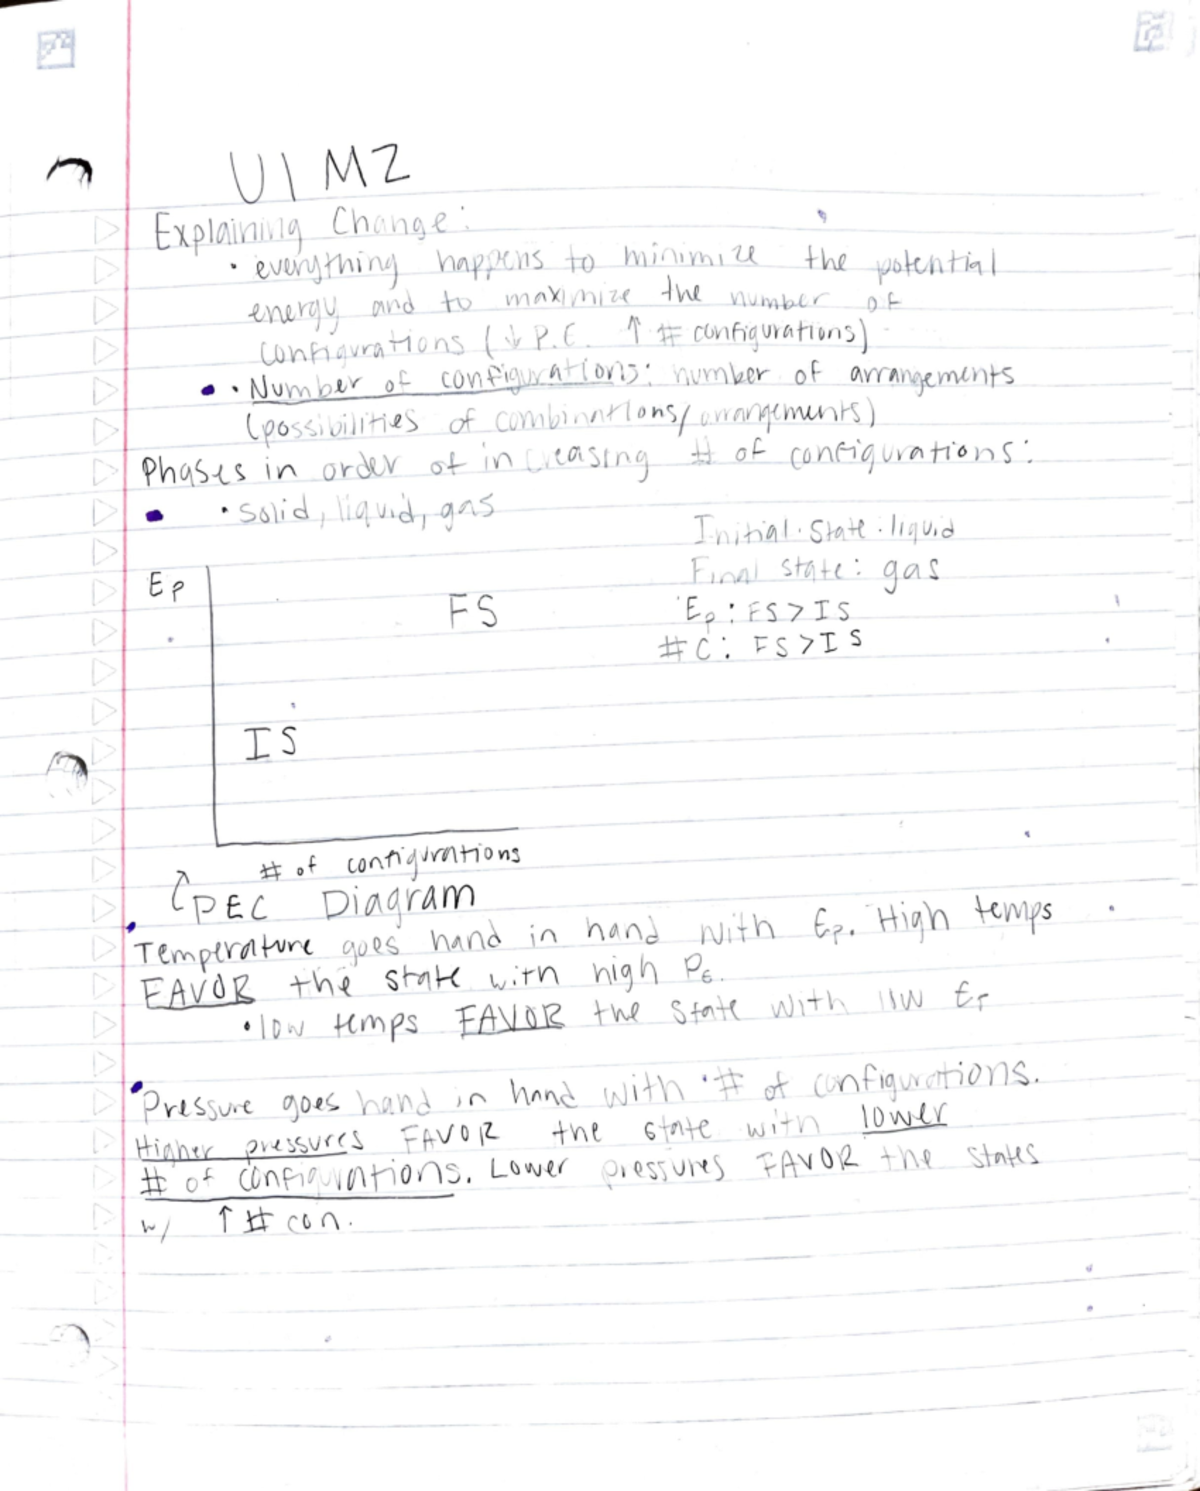 U1 M2
Explaining Change:
• everything happens to minimize the potential
energy and to maximize the number of
configurations (↓ P.E. ↑ # configurations)
• Number of configurations: number of arrangements
(possibilities of combinations/arrangements)
Phases in order of increasing # of configurations:
• solid, liquid, gas
Initial State: liquid
Final state: gas
Ep: FS > IS
# C: FS > IS
Ep
FS
IS
# of configurations
PEC Diagram
Temperature goes hand in hand with Ep. High temps
FAVOR the state with high PE.
• low temps FAVOR the state with low Ep
Pressure goes hand in hand with # of configurations.
Higher pressures FAVOR the state with lower
# of configurations. Lower pressures FAVOR the states
w/ ↑ # con.